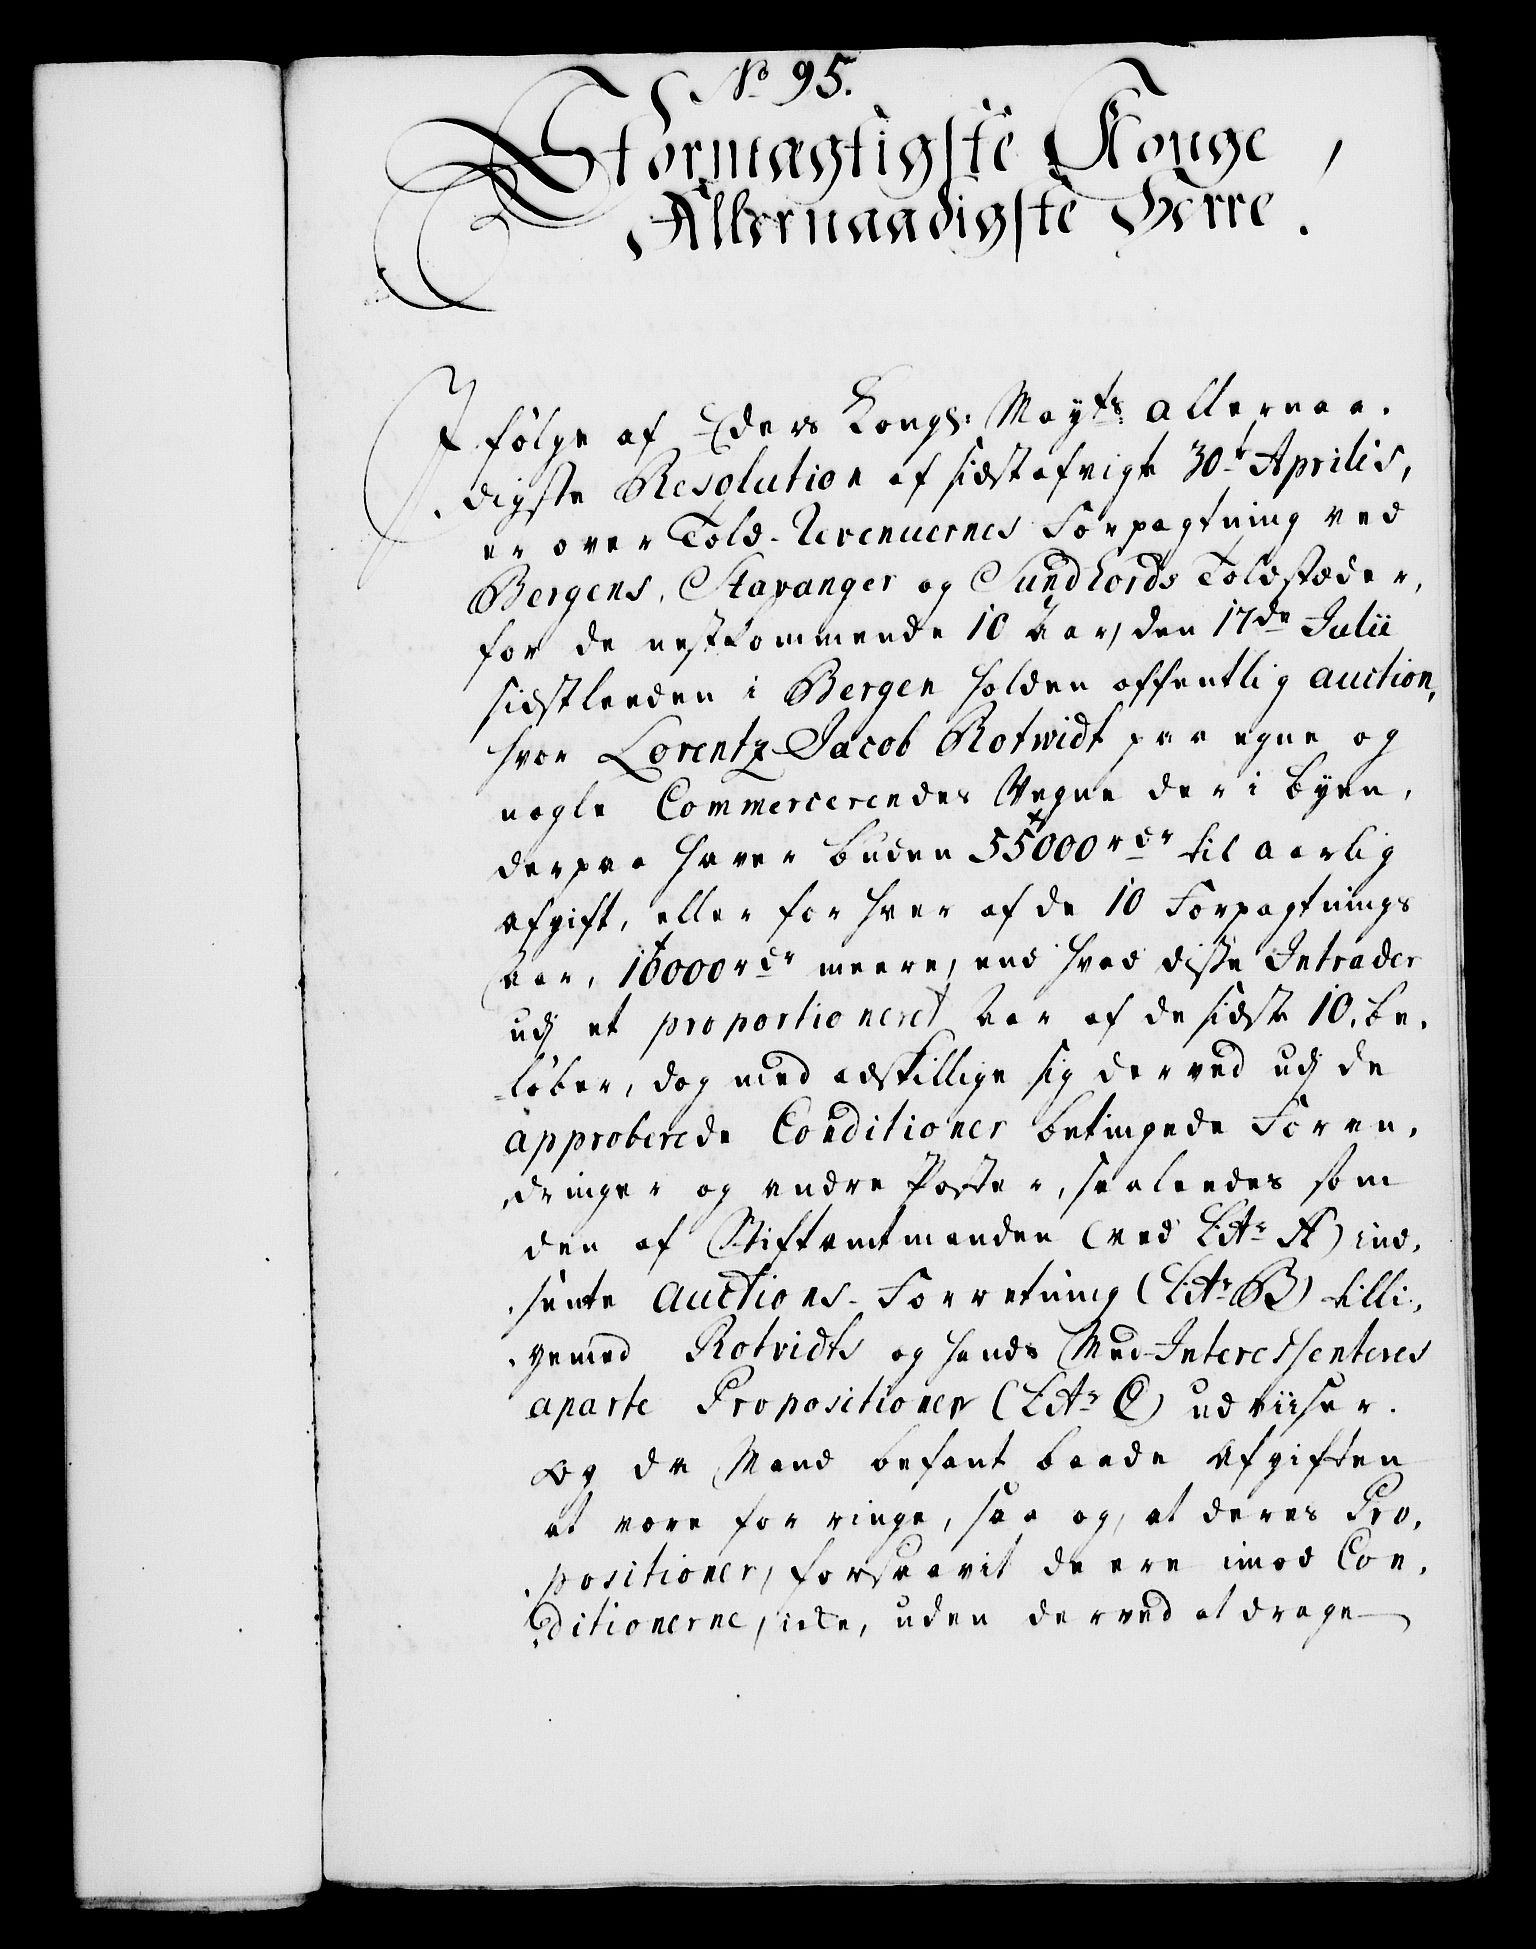 No 95.
Stormægtigste Konge,
Allernaadigste Herre.
I følge af Eders Kongl: Mayts allernaa-
digste Resolution af sidstafvigte 30te Aprilis,
er over Told-Revenuernes Forpagtning ved
Bergens, Stavanger og Sundlords Toldstæder,
for de nestkommende 10 Aar, den 17de Julii
sidstleeden i Bergen holden offentlig auction,
hvor Lorentz Jacob Rotwidt paa egne og
nogle Commercerendes Vegne der i Byen,
derpaa haver buden 55000 rdr til aarlig
Afgift, eller for hver af de 10 Forpagtnings
Aar, 16000 rdr meere, end hvad disse Intrader
udj et proportioneret Aar af de sidste 10, be-
løber, dog med adskillige sig derved udj de
approberede Conditioner betingede Foren-
dringer og andre Poster, saaledes som
den af Stiftamtmanden (ved Litr A) ind-
sente Auctions-Forretning (Litr B) tilli-
gemed Rotvidts og hands Med-Interessenteres
aparte Propositioner (Litr C) udviiser.
Og da Mand befant baade Afgiften
at være for ringe, saa og, at deres Pro-
positioner, forsaavit de ere imod Con-
ditionerne, icke, uden derved at drage